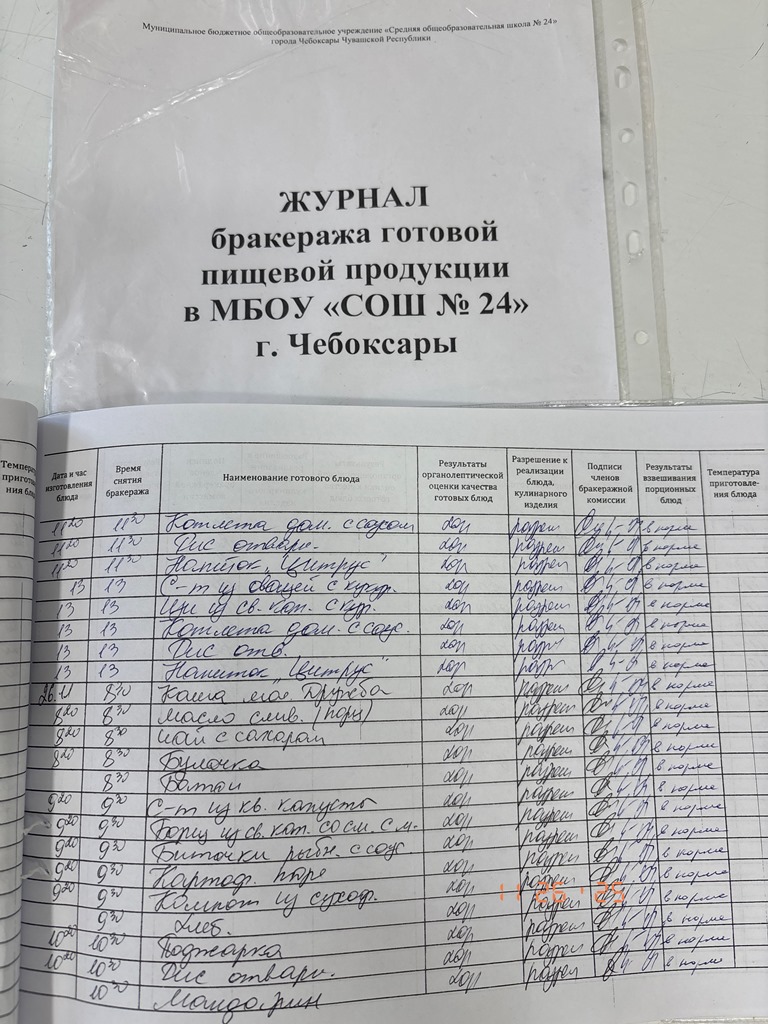 Муниципальное бюджетное общеобразовательное учреждение «Средняя общеобразовательная школа № 24»
города Чебоксары Чувашской Республики
ЖУРНАЛ
бракеража готовой
пищевой продукции
в МБОУ «СОШ № 24»
г. Чебоксары
Дата и час изготовления блюда Время снятия бракеража Наименование готового блюда Результаты органолептической оценки качества готовых блюд Разрешение к реализации блюда, кулинарного изделия Подписи членов бракеражной комиссии Результаты взвешивания порционных блюд Температура приготовле-ния блюда
11 20 11 30 Котлета дом. с соусом хор разреш в норме
11 20 11 30 Рис отварн. хор разреш в норме
11 20 11 30 Напиток „Цитрус" хор разреш в норме
13 13 С-т из овощей с кукур. хор разреш в норме
13 13 Щи из св. кап. с кур. хор разреш в норме
13 13 Котлета дом. с соус. хор разреш в норме
13 13 Рис отв. хор разреш в норме
13 13 Напиток „Цитрус" хор разреш в норме
26.11 8 30 Каша мол. Дружба хор разреш в норме
8 20 8 30 Масло слив. (порц) хор разреш в норме
8 20 8 30 Чай с сахаром хор разреш в норме
8 20 8 30 Булочка хор разреш в норме
8 30 Батон хор разреш в норме
9 20 9 30 С-т из кв. капусты хор разреш в норме
9 20 9 30 Борщ из св. кап. со см. с м. хор разреш в норме
9 20 9 30 Биточки рыбн. с соус хор разреш в норме
9 20 9 30 Картоф. пюре хор разреш в норме
9 20 9 30 Компот из сухоф. хор разреш в норме
9 30 Хлеб. хор разреш в норме
10 20 10 30 Поджарка хор разреш в норме
10 20 10 30 Рис отварн. хор разреш в норме
10 30 Мандарин
11 26 '25